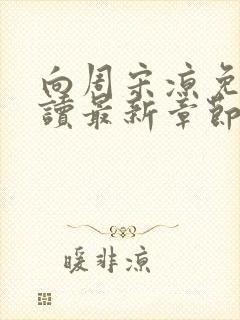 向周宋凉免
讀最新章節
暖非凉